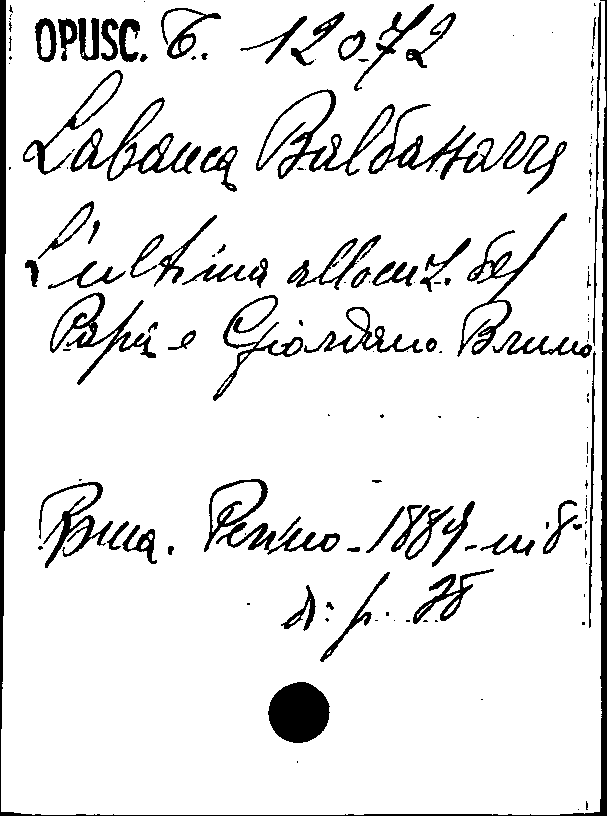 OPUSC. T. 12072
Labanca Baldassarre
L'ultima allocuz. del
Papa e Giordano Bruno
Roma. Perino - 1889 - in 8°
di p. 28